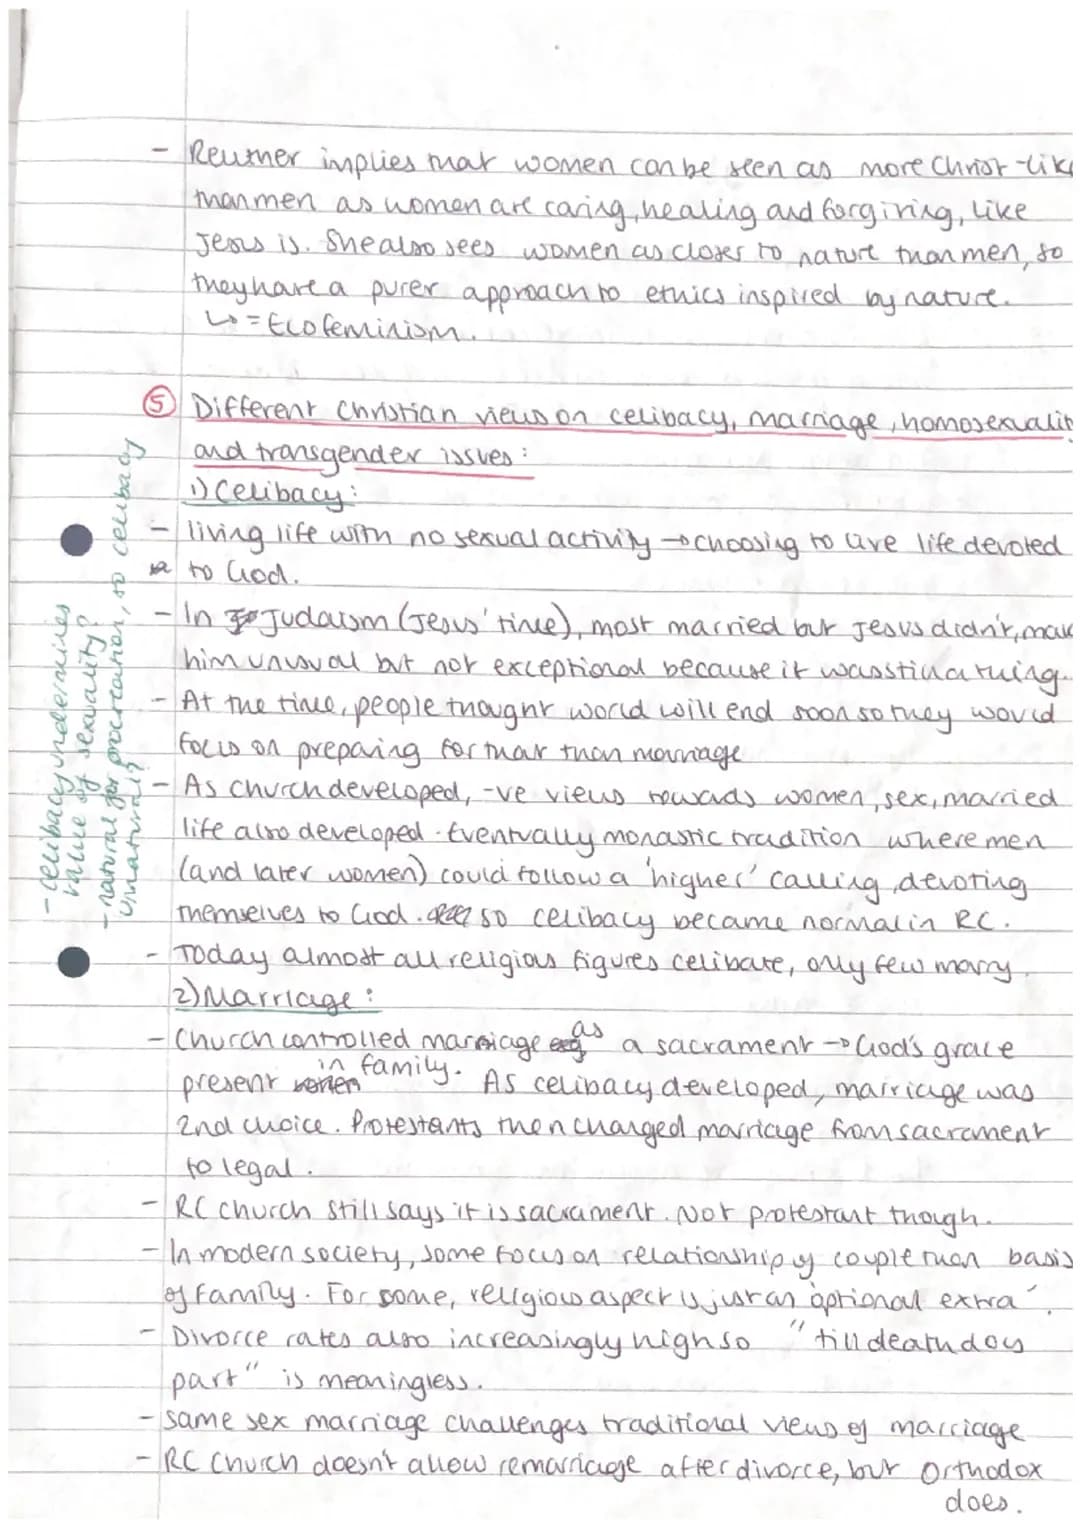 - Reuther implies that women can be seen as more Christ-like
than men as women are caring, healing and forgiving, like
Jesus is. She also sees women as closer to nature than men, so
they have a purer approach to ethics inspired by nature.
↳ = Ecofeminism.
⑤ Different Christian views on celibacy, marriage, homosexuality
and transgender issues:
1) Celibacy:
- living life with no sexual activity → choosing to live life devoted
to God.
- In Judaism (Jesus' time), most married but Jesus didn't, mak
him unusual but not exceptional because it was still a thing.
- At the time, people thought world will end soon so they would
focus on preparing for that than marriage
- As church developed, -ve views towards women, sex, married
life also developed. Eventually monastic tradition where men
(and later women) could follow a 'higher' calling, devoting
themselves to God. so celibacy became normal in RC.
- Today almost all religious figures celibate, only few marry.
2) Marriage:
- Church controlled marriage as a sacrament → God's grace
present in family. As celibacy developed, marriage was
2nd choice. Protestants then changed marriage from sacrament
to legal.
- RC church still says it is sacrament. Not protestant though.
- In modern society, some focus on relationship of couple than basis
of family. For some, religious aspect is just an 'optional extra'.
- Divorce rates also increasingly high so "till death do us
part" is meaningless.
- same sex marriage challenges traditional views of marriage
- RC Church doesn't allow remarriage after divorce, but Orthodox
does.
- celibacy undermines
value of sexuality?
- natural for procreation, so celibacy
unnatural?